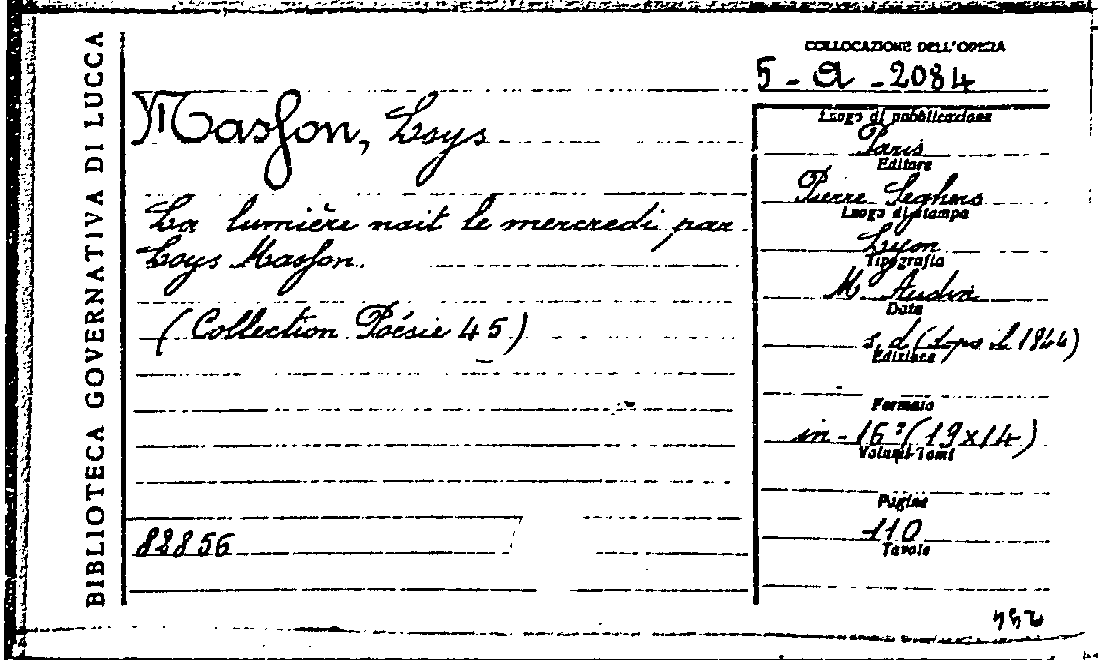 BIBLIOTECA GOVERNATIVA DI LUCCA
COLLOCAZIONE DELL'OPERA
5 - A - 2084
Masson, Loys
La lumière nait le mercredi par
Loys Masson.
(Collection Poésie 45)
82856
Luogo di pubblicazione
Paris
Editore
Pierre Seghers
Luogo di stampa
Lyon
Tipografia
M. Audin
Data
s. d. (dopo il 1944)
Edizione
Formato
in - 16° (19x14)
Volumi-Tomi
Pagine
110
Tavole